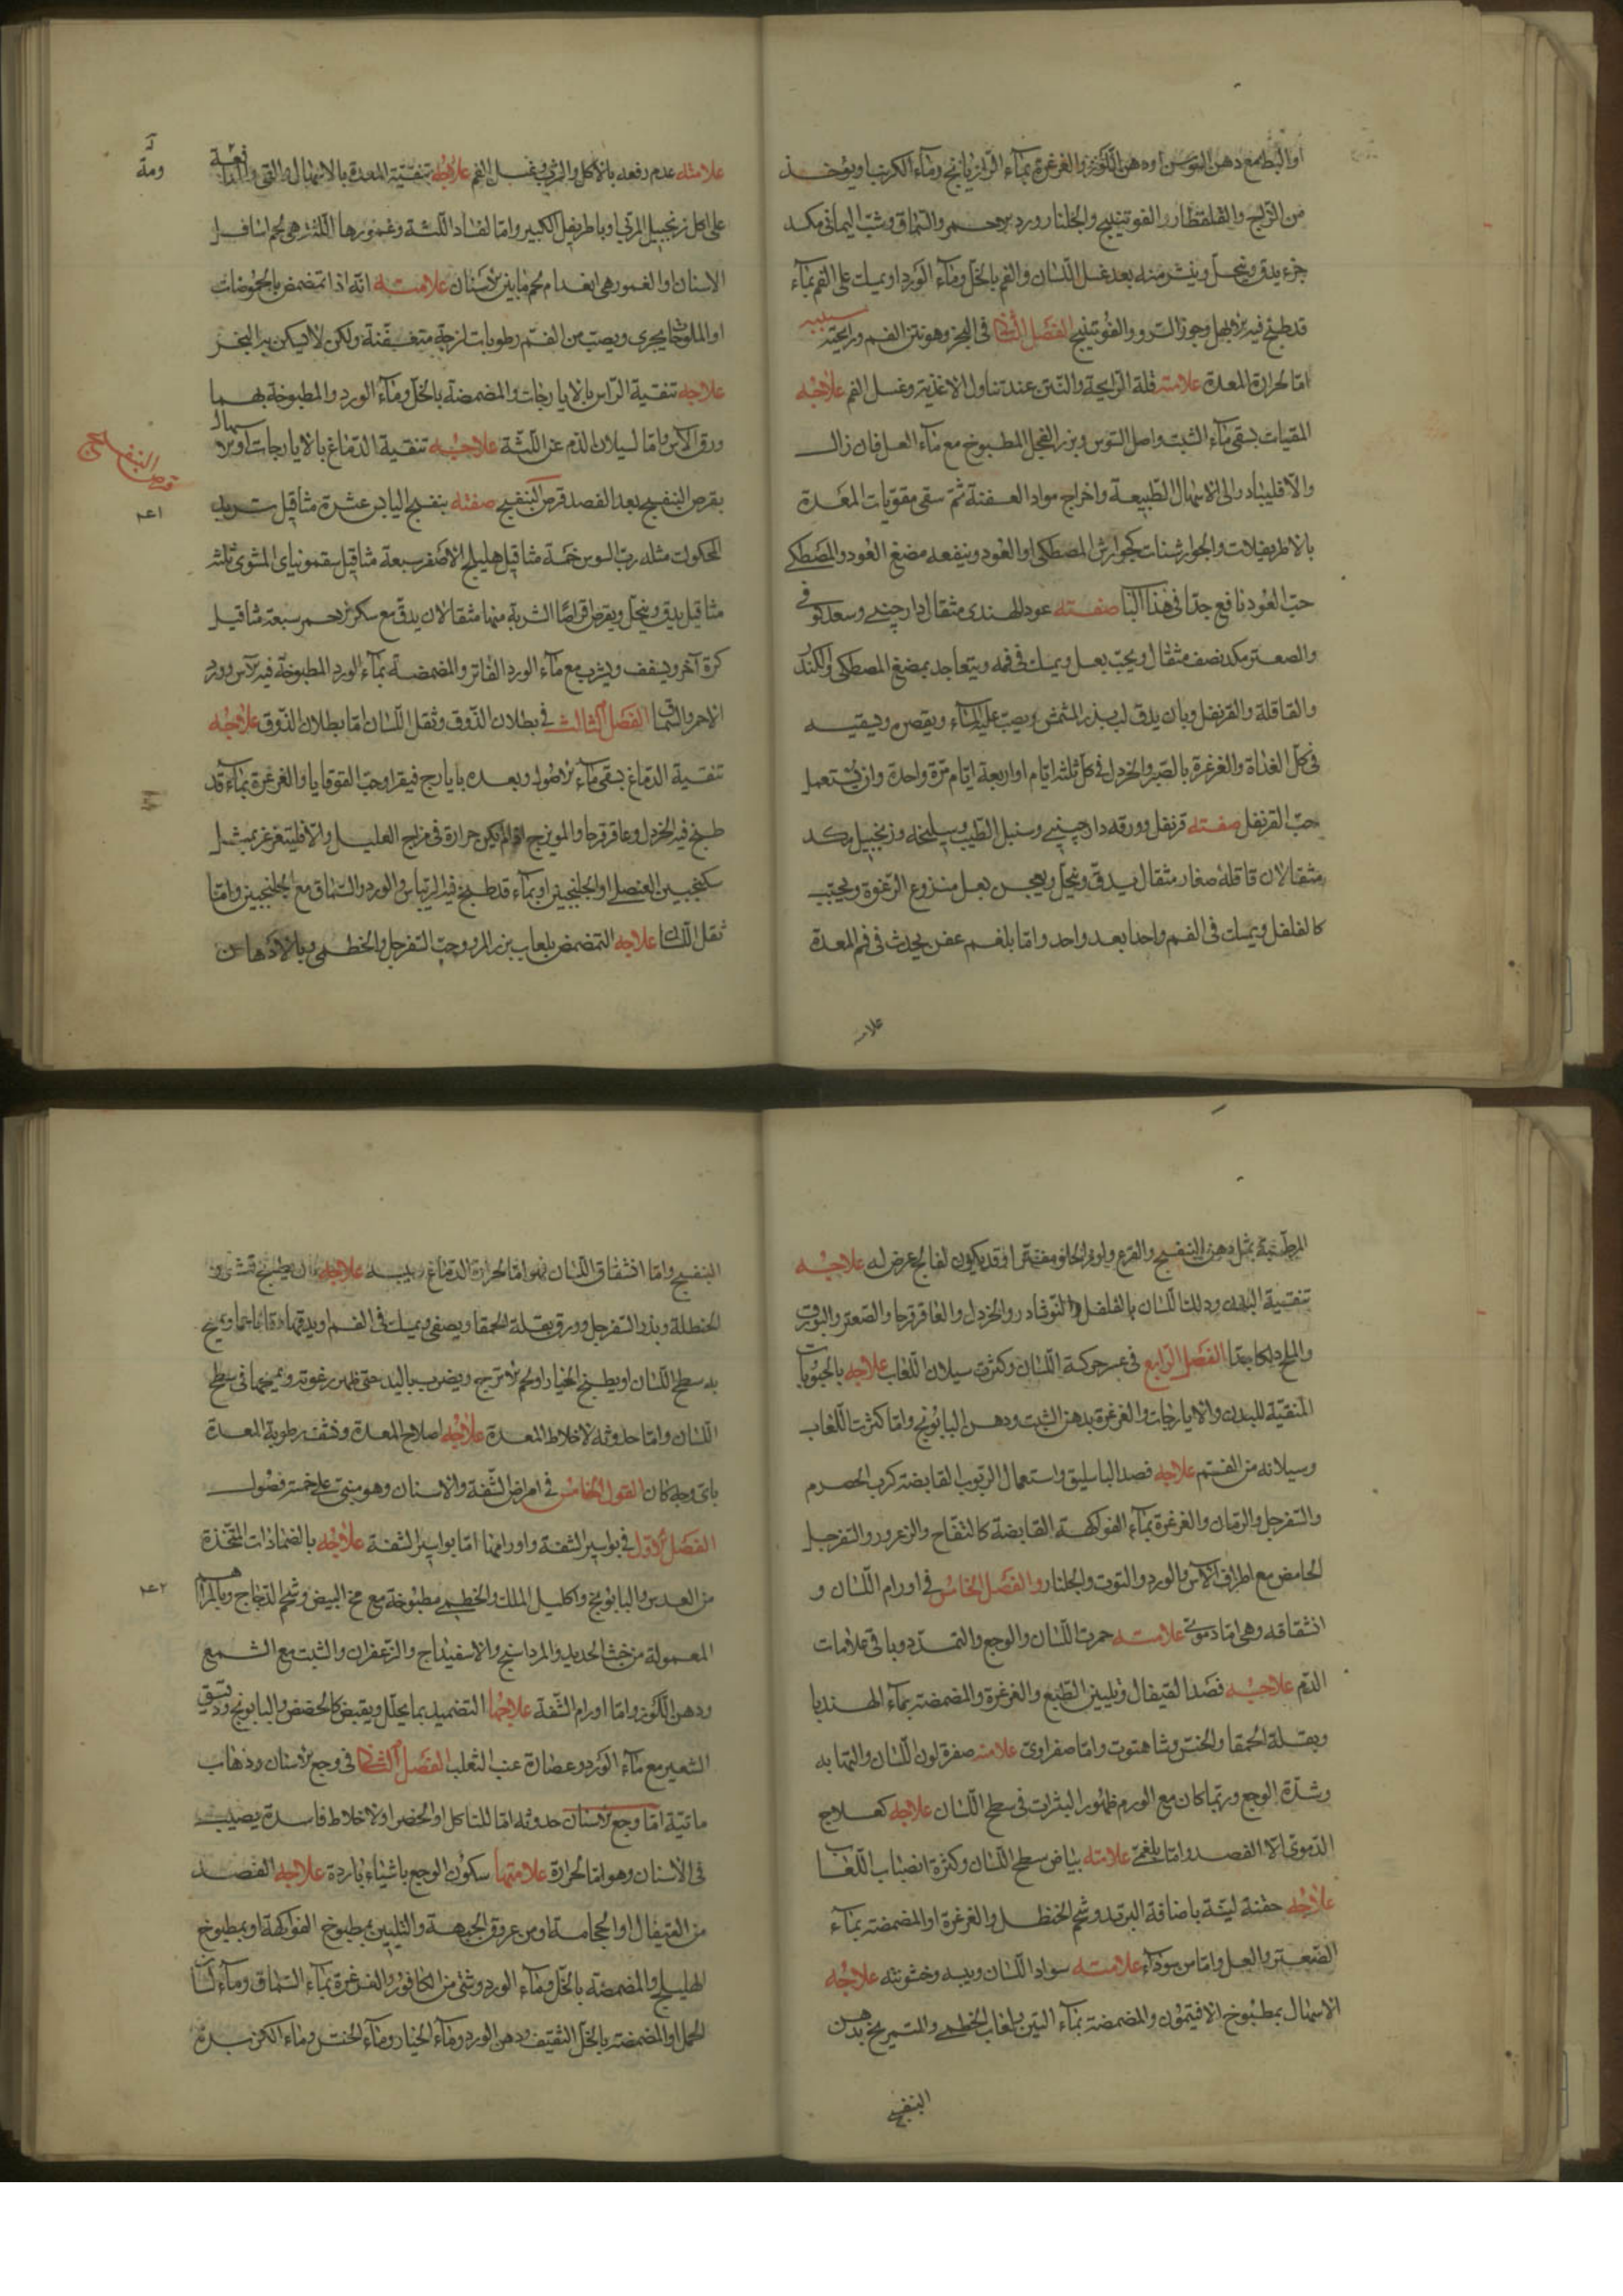 او البط مع دهن السوسن او دهن اللوز والغرغرة بماء الرازيانج وماء الكرنب او يؤخذ
من الزاج والقلقطار والفوتينج والجلنار وورد الاحمر والسماق وشب اليماني مكد
جزء يدق وينخل وينثر منه بعد غسل اللسان والفم بالخل وماء الورد او يمسك على الفم بماء
قد طبخ فيه الابهل وجوز السرو والفوتينج الفصل الثاني في البخر وهو نتن الفم ورايحته سببه
اما لحرارة المعدة علامته قلة الرايحة والنتن عند تناول الاغذية وغسل الفم علاجه
المقيات بسقي ماء الشبت واصل السوس وبزر الفجل المطبوخ مع ماء العسل فان زال
والا فليبادر الى الاسهال الطبيعة واخراج مواد العفنة ثم سقي مقويات المعدة
بالاطريفلات والجوارشنات كجوارش المصطكي او العود وينفعه مضغ العود والمصطكي
حب العود نافع جدا في هذا الباب صفته عود الهندي مثقال دارچيني وسعد كوفي
والصعتر مكد نصف مثقال ويحب بعسل ويمسك في فمه ويتعاجد بمضغ المصطكي والكندر
والقاقلة والقرنفل وبان يدق لب بذر المشمش ويصب عليه الماء ويقصره ويسقيه
في كل الغداة والغرغرة بالصبر والخردل في كل ثلثة ايام او اربعة ايام مرة واحدة وان يستعمل
حب القرنفل صفته قرنفل وورقه دارچيني وسنبل الطيب وسليخه وزنجبيل مكد
مثقالان قاقلة صغار مثقال يدق وينخل ويعجن بعسل منزوع الرغوة ويحبب
كالفلفل ويمسك في الفم واحدا بعد واحد واما بلغم عفن يحدث في فم المعدة
علامته
علامته عدم رفعه بالاكل والشرب وغسل الفم علاجه تنقية المعدة بالاسهال والقي والمداومة
على اكل زنجبيل المربى وباطريفل الكبير واما لفساد اللثة وغمورها اللثة هي لحم اسافل
الاسنان او الغمور هي انعدام لحم ما بين الاسنان علامته انه اذا تمضمض بالحموضات
او الملوحات يجري ويصب من الفم رطوبات لزجة متعفنة ولكن لا يسكن به البخر
علاجه تنقية الراس بالايارجات والمضمضة بالخل وماء الورد والمطبوخة بهما
ورق الآس واما لسيلان الدم عن اللثة علاجه تنقية الدماغ بالايارجات او الاسهال
بقرص البنفسج بعد الفصد قرص البنفسج صفته بنفسج اليابس عشرة مثاقيل تربد
المحكوك مثله رب السوس خمسة مثاقيل هليلج الاصفر سبعة مثاقيل سقمونياي المشوي ثلثة
مثاقيل يدق وينخل ويقرص اقراصا الشربة منها مثقالان يدق مع سكر الاحمر سبعة مثاقيل
كرة آخر ويسفف ويشرب مع ماء الورد الفاتر والمضمضة بماء الورد المطبوخة فيه الآس وورد
الاحمر والسماق الفصل الثالث في بطلان الذوق وثقل اللسان اما بطلان الذوق علاجه
تنقية الدماغ بسقي ماء الاصول وبعده بايارج فيقرا وحب القوقايا والغرغرة بماء قد
طبخ فيه الخردل وعاقرقرحا والمويزج ان لم يكن حرارة في مزاج العليل والا فليتغرغر بمثل
سكنجبين العنصلي او الجلنجبين او بماء قد طبخ فيه الريباس والورد والسماق مع الجلنجبين واما
ثقل اللسان علاجه التمضمض بلعاب بزر المرو وحب السفرجل والخطمي وبالادهان
قرص البنفسج
١٤١
المرطبة مثل دهن البنفسج والقرع ولوز الحلو مفترا وقد يكون لفالج عرض له علاجه
تنقية البدن ودلك اللسان بالفلفل والنوشادر والخردل والعاقرقرحا والصعتر والبورق
والملح دلكا جيدا الفصل الرابع في عسر حركة اللسان وكثرت سيلان اللعاب علاجه بالحبوبات
المنقية للبدن والايارجات والغرغرة بدهن الشبت ودهن البابونج واما كثرت اللعاب
وسيلانه من الفم علاجه فصد الباسليق واستعمال الربوب القابضة كرب الحصرم
والسفرجل والرمان والغرغرة بماء الفواكهة القابضة كالتفاح والزعرور والسفرجل
الحامض مع اطراف الآس والورد والتوت والجلنار والفصل الخامس في اورام اللسان و
انشقاقه وهي اما دموي علامته حمرت اللسان والوجع والتمدد وباقي علامات
الدم علاجه فصد القيفال وتليين الطبع والغرغرة والمضمضة بماء الهندبا
وبقلة الحمقا والخس وشاهتوت واما صفراوي علامته صفرة لون اللسان والتهابه
وشدة الوجع وربما كان مع الورم ظهور البثرات في سطح اللسان علاجه كعلاج
الدموي الا الفصد واما بلغمي علامته بياض سطح اللسان وكثرة انصباب اللعاب
علاجه حقنة لينة باضافة التربد وشحم الحنظل والغرغرة او المضمضة بماء
الصعتر والعسل واما من سوداء علامته سواد اللسان ويبسه وخشونته علاجه
الاسهال بمطبوخ الافتيمون والمضمضة بماء التين ولعاب الخطمي والتمريخ بدهن
البنفسج
البنفسج واما انشقاق اللسان فهو اما لحرارة الدماغ ويبسه علاجه ان يطبخ قشور
الحنطلة وبذر السفرجل وورق بقلة الحمقا ويصفى ويمسك في الفم او يدقها دقا ناعما ويمسح
به سطح اللسان او يطبخ الخيار او لحم الاترج ويضرب باليد حتى ظهر رغوته ويمسحها في سطح
اللسان واما حدوثه لاخلاط المعدة علاجه اصلاح المعدة ونشف رطوبة المعدة
باي وجه كان القول الخامس في امراض الشفة والاسنان وهو مبني على خمسة فصول
الفصل الاول في بواسير الشفة واورامها اما بواسير الشفة علاجه بالضمادات المتخذة
من العدس والبابونج واكليل الملك والخطمي مطبوخة مع مخ البيض وشحم الدجاج وبالمراهم
المعمولة من خبث الحديد والمرداسنج والاسفيداج والزعفران والشبت مع الشمع
ودهن اللوز واما اورام الشفة علاجها التضميد بما يحلل ويقبض كالحضض والبابونج ودقيق
الشعير مع ماء الورد وعصارة عنب الثعلب الفصل الثاني في وجع الاسنان وذهاب
مائية اما وجع الاسنان حدوثه اما للتاكل او الحضر او لاخلاط فاسدة يصيب
في الاسنان وهو اما لحرارة علامتها سكون الوجع باشياء باردة علاجه الفصد
من القيفال او الحجامة او من عروق الجبهة والتليين بمطبوخ الفواكهة او بمطبوخ
الهليلج والمضمضة بالخل وماء الورد وشئ من الكافور والغرغرة بماء السماق وماء لسان
الحمل او المضمضة بالخل الثقيف ودهن الورد وماء الخيار وماء الخس وماء الكزبرة
١٤٢